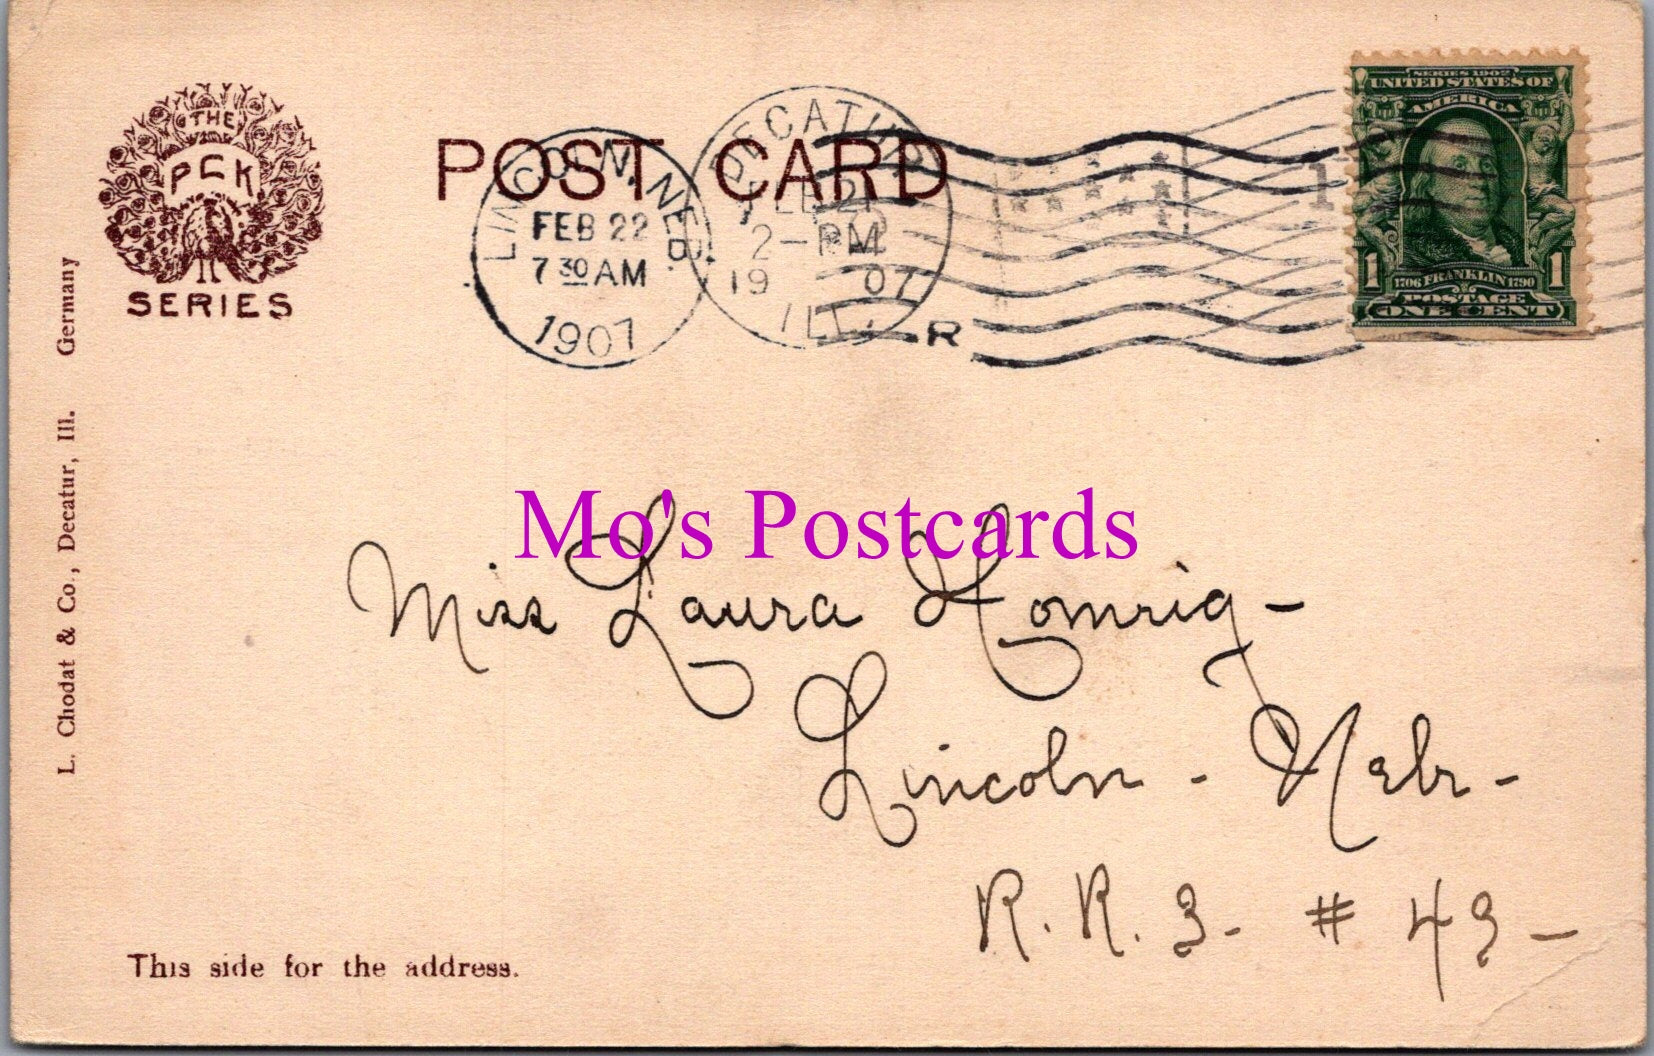 THE
PCK
SERIES
POST CARD
LINCOLN, NEB.
FEB 22
7 30 AM
1907
DECATUR
FEB 21
2-PM
19 07
ILL.
R
1
SERIES 1902
UNITED STATES OF
AMERICA
1 1706 FRANKLIN 1790 1
POSTAGE
ONE CENT
L. Chodat & Co., Decatur, Ill. Germany
Mo's Postcards
Miss Laura Homrig -
Lincoln - Nebr -
R. R. 3 - # 43 -
This side for the address.